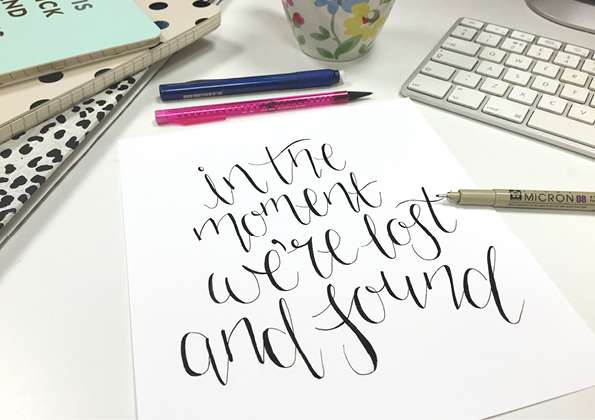 IS
CK
ND
in the
moment
we're lost
and found
MICRON 08